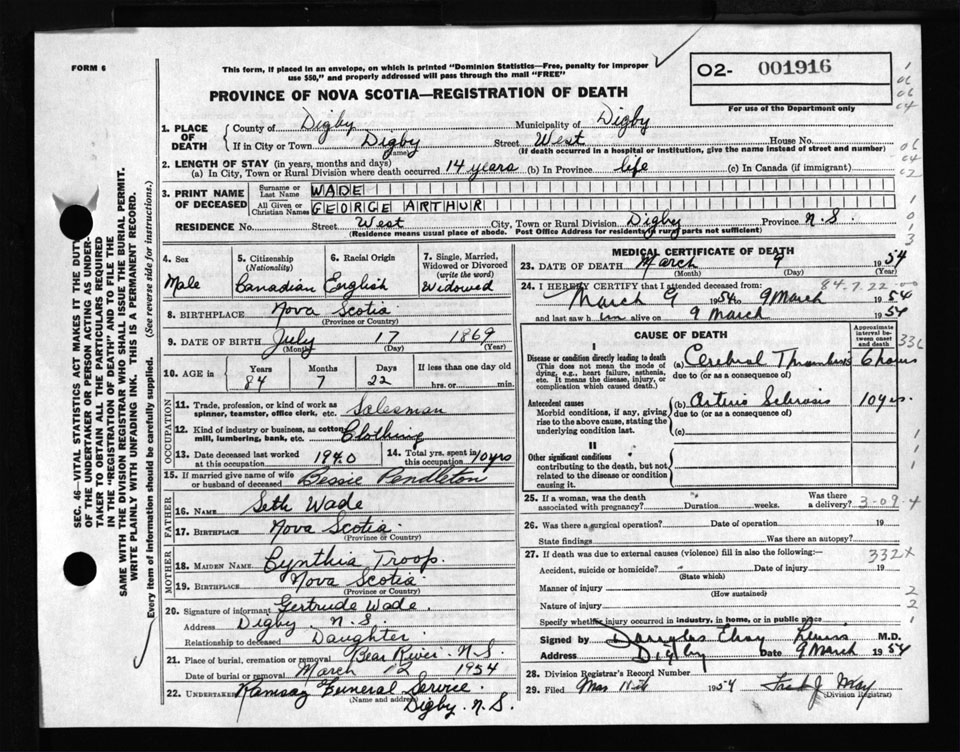 FORM 6
This form, if placed in an envelope, on which is printed "Dominion Statistics—Free, penalty for improper
use $50," and properly addressed will pass through the mail "FREE"
O2- 001916
For use of the Department only
PROVINCE OF NOVA SCOTIA—REGISTRATION OF DEATH
1. PLACE OF DEATH
County of Digby Municipality of Digby
If in City or Town Digby Street West House No.
(Name) (If death occurred in a hospital or institution, give the name instead of street and number)
2. LENGTH OF STAY (in years, months and days)
(a) In City, Town or Rural Division where death occurred 14 years (b) In Province life (c) In Canada (if immigrant)
3. PRINT NAME OF DECEASED
Surname or Last Name WADE
All Given or Christian Names GEORGE ARTHUR
RESIDENCE No. Street West City, Town or Rural Division Digby Province N.S.
(Residence means usual place of abode. Post Office Address for residents in rural parts not sufficient)
4. Sex Male
5. Citizenship (Nationality) Canadian
6. Racial Origin English
7. Single, Married, Widowed or Divorced (write the word) Widowed
8. BIRTHPLACE Nova Scotia
(Province or Country)
9. DATE OF BIRTH July 17 1869
(Month) (Day) (Year)
10. AGE in Years 84 Months 7 Days 22 If less than one day old hrs. or min.
OCCUPATION
11. Trade, profession, or kind of work as spinner, teamster, office clerk, etc. Salesman
12. Kind of industry or business, as cotton mill, lumbering, bank, etc. Clothing
13. Date deceased last worked at this occupation 1940
14. Total yrs. spent in this occupation 10 yrs
15. If married give name of wife or husband of deceased Bessie Pendleton
FATHER
16. NAME Seth Wade
17. BIRTHPLACE Nova Scotia
(Province or Country)
MOTHER
18. MAIDEN NAME Cynthia Troop
19. BIRTHPLACE Nova Scotia
(Province or Country)
20. Signature of informant Gertrude Wade
Address Digby N.S.
Relationship to deceased Daughter
21. Place of burial, cremation or removal Bear River N.S.
Date of burial or removal March 12 1954
22. UNDERTAKER Ramsay Funeral Service
(Name and address) Digby. N.S.
MEDICAL CERTIFICATE OF DEATH
23. DATE OF DEATH March 9 1954
(Month) (Day) (Year)
84.7.22
24. I HEREBY CERTIFY that I attended deceased from:
March 9 1954 to 9 March 1954
and last saw him alive on 9 March 1954
CAUSE OF DEATH
Approximate interval between onset and death
I
Disease or condition directly leading to death
(This does not mean the mode of dying, e.g., heart failure, asthenia, etc. It means the disease, injury, or complication which caused death.)
(a) Cerebral Thrombosis 6 hours
due to (or as a consequence of)
Antecedent causes
Morbid conditions, if any, giving rise to the above cause, stating the underlying condition last.
(b) Arterio Sclerosis 10 yrs.
due to (or as a consequence of)
(c)
II
Other significant conditions
contributing to the death, but not related to the disease or condition causing it.
25. If a woman, was the death associated with pregnancy? Duration weeks. Was there a delivery? 3-09-4
26. Was there a surgical operation? Date of operation 19
State findings Was there an autopsy?
27. If death was due to external causes (violence) fill in also the following:— 332X
Accident, suicide or homicide? Date of injury 19
(State which)
Manner of injury
(How sustained)
Nature of injury
Specify whether injury occurred in industry, in home, or in public place
Signed by Lewis M.D.
Address Digby Date 9 March 1954
28. Division Registrar's Record Number
29. Filed Mar 1954 May
(Division Registrar)
SEC. 46—VITAL STATISTICS ACT MAKES IT THE DUTY
OF THE UNDERTAKER OR PERSON ACTING AS UNDER-
TAKER TO OBTAIN ALL THE PARTICULARS REQUIRED
IN THE "REGISTRATION OF DEATH" AND TO FILE THE
SAME WITH THE DIVISION REGISTRAR WHO SHALL ISSUE THE BURIAL PERMIT.
WRITE PLAINLY WITH UNFADING INK. THIS IS A PERMANENT RECORD.
Every item of information should be carefully supplied. (See reverse side for instructions.)